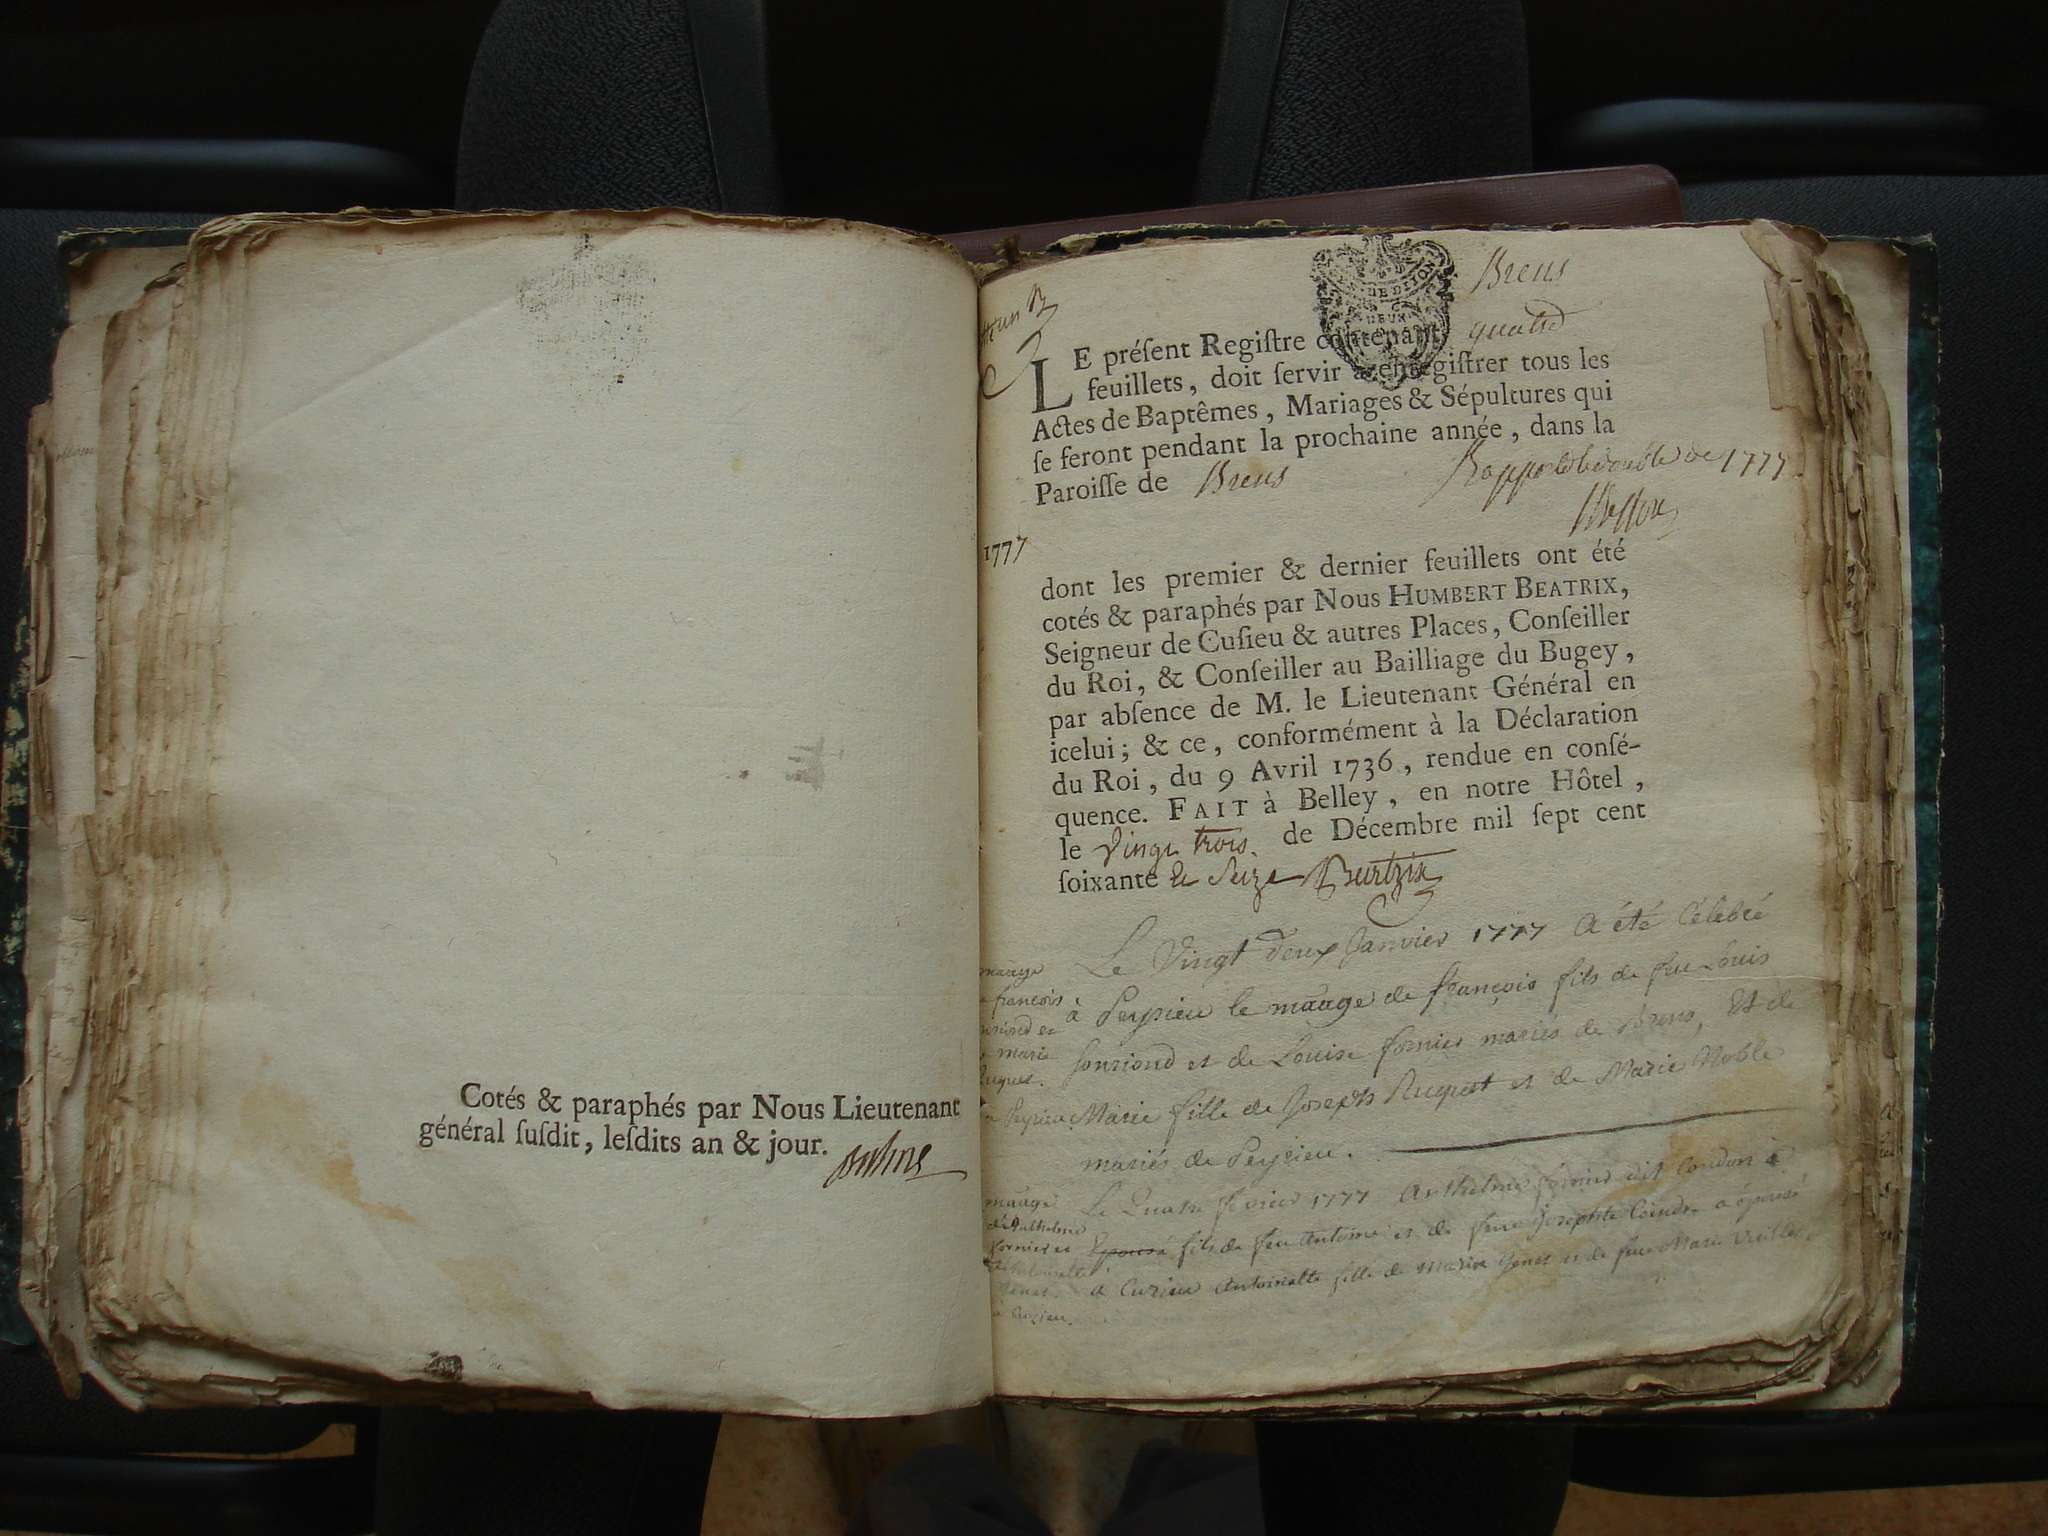 Cotés & paraphés par Nous Lieutenant
général ſuſdit, leſdits an & jour.
Brens
LE préſent Regiſtre contenant quatre
feuillets, doit ſervir à enregiſtrer tous les
Actes de Baptêmes, Mariages & Sépultures qui
ſe feront pendant la prochaine année, dans la
Paroiſſe de Brens
de 1777
1777
dont les premier & dernier feuillets ont été
cotés & paraphés par Nous HUMBERT BEATRIX,
Seigneur de Cuſieu & autres Places, Conſeiller
du Roi, & Conſeiller au Bailliage du Bugey,
par abſence de M. le Lieutenant Général en
icelui; & ce, conformément à la Déclaration
du Roi, du 9 Avril 1736, rendue en conſé-
quence. FAIT à Belley, en notre Hôtel,
le vingt trois de Décembre mil ſept cent
ſoixante et seize
Le vingt deux Janvier 1777 a été Célébré
à Peyrieu le mariage de françois fils de feu Louis
et de Louise fornier mariés de Brens, Et de
Marie fille de Joseph et de Marie Noble
mariés de Peyrieu.
mariage
françois
marie
Le Quatre fevrier 1777 Anthelme fornier dit Condon
fils de feu Antoine et de feue Josephte a épousé
a Cuzieu Antoinette fille de Genet et de feue Marie
mariage
d'Anthelme
fornier et
Antoinette
Genet
à Cuzieu.